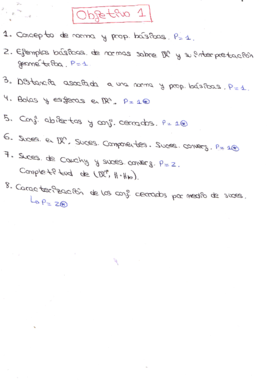 Objetivo 1
1. Concepto de norma y prop. básicas. P=1.
2. Ejemplos básicos de normas sobre ℝⁿ y su interpretación
geométrica. P=1
3. Distancia asociada a una norma y prop. básicas. P=1.
4. Bolas y esferas en ℝⁿ. P=1
5. Conj. abiertos y conj. cerrados. P=1
6. Suces. en ℝⁿ. Suces. Componentes. Suces. converg.
7. Suces. de Cauchy y suces. converg. P=2.
Completitud de (ℝⁿ, ||·||∞).
8. Caracterización de los conj. cerrados por medio de suces.
↳ P=2